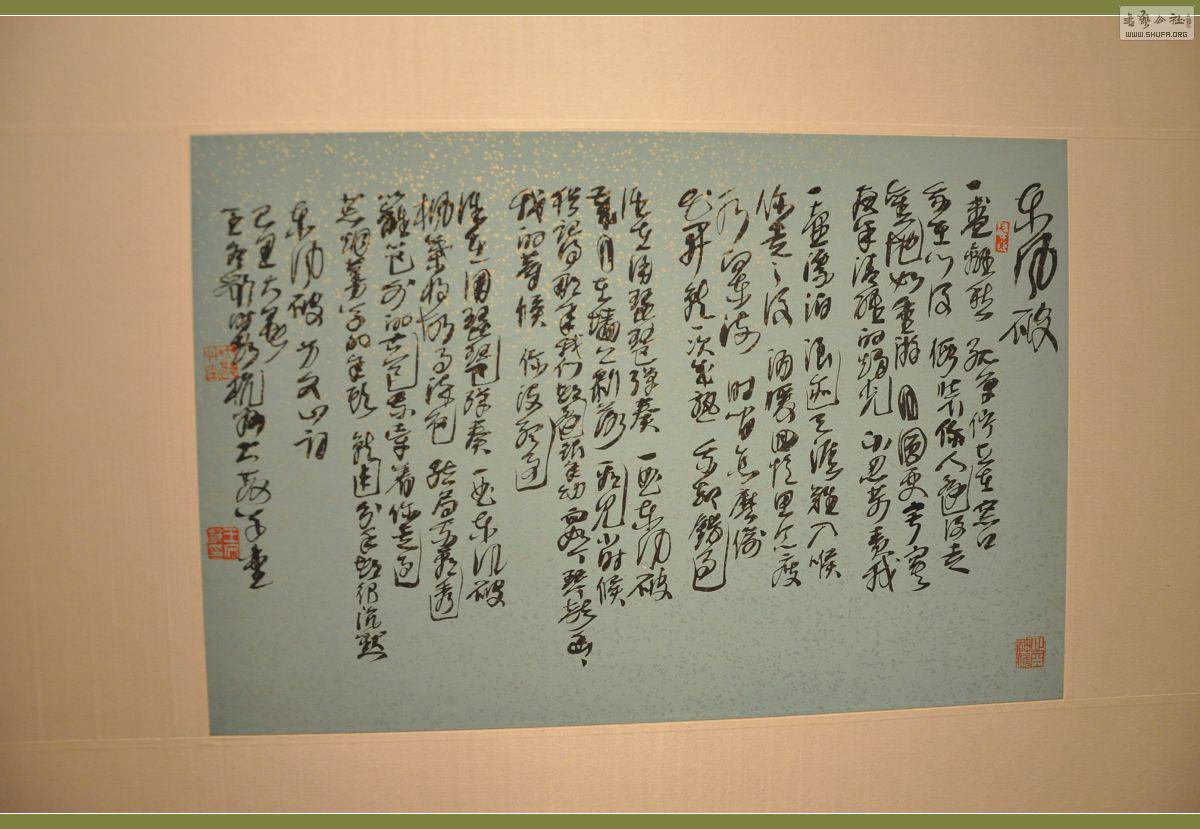 东风破
一盏離愁 孤单伫立在窗口
我在门後 假装你人還没走
舊地如重游 月圓更寂寞
夜半清醒的烛光 不忍苛责我
一壶漂泊 浪迹天涯難入喉
你走之後 酒暖回忆思念瘦
水向东流 时间怎么偷
花开就一次成熟 我却錯過
谁在用琵琶弹奏 一曲东风破
歲月在墙上剥落 看见小时候
犹记得那年我们都還很年幼 而如今琴声幽幽
我的等候 你没听過
谁在用琵琶弹奏 一曲东风破
枫葉将故事染色 结局我看透
籬笆外的古道 我牵着你走過
荒烟蔓草的年头 就连分手都很沉默
东风破 方文山词
己丑大暑
王冬龄时客杭州
书艺公社
WWW.SHUFA.ORG